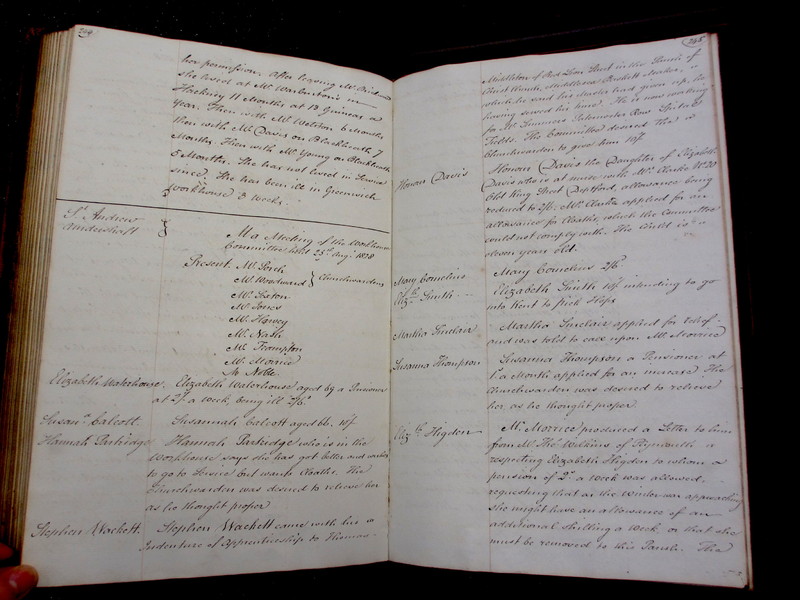 264
her permission. After leaving Mr.
she lived at Mr. Warburton's in
Hackney 11 Months at 12 Guineas a
Year. Then with Mr. 6 Months
then with Mr. Davis on Blackheath 7
Months. Then with Mr. Young on Blackheath
5 Months. She has not lived in Service
since. She has been ill in Greenwich
workhouse 3 weeks.
St. Andrew
Undershaft
At a Meeting of the Workhouse
Committee held 25th Augt. 1828
Present Mr. Porch
Mr. Woodward } Churchwardens
Mr. Sexton
Mr. Jones
Mr. Harvey
Mr. Nash
Mr. Frampton
Mr. Morrice
Mr. Noble
Elizabeth Waterhouse
Elizabeth Waterhouse aged 69 a Pensioner
at 2/- a week, being ill 2/6.
Susanh. Calcott.
Susannah Calcott aged 66. 10/-
Hannah Partridge
Hannah Partridge who is in the
Workhouse says she has got better and wishes
to go to Service but wants Cloaths. The
Churchwarden was desired to relieve her
as he thought proper
Stephen Wackett.
Stephen Wackett came with his
Indenture of Apprenticeship to Thomas
265
Middleton of Red Lion Street in the Parish of
Christ Church, Middlesex, Maker,
which he said his Master had given up, he
having served his time. He is now working
for Mr. Paternoster Row Spital
Fields. The Committee desired the
Churchwarden to give him 10/-
Honour Davis
Honour Davis the Daughter of Elizabeth
Davis who is at nurse with Mrs. Clarke No. 20
Old King Street Deptford, allowance being
reduced to 2/6. Mrs. Clarke applied for an
allowance for Cloaths, which the Committee
could not comply with. The Child is
eleven years old.
Mary Cornelius
Mary Cornelius 2/6.
Elizth. Smith
Elizabeth Smith 10/- intending to go
into Kent to pick Hops
Martha Sinclair
Martha Sinclair applied for relief
and was told to call upon Mr. Morrice
Susanna Thompson
Susanna Thompson a Pensioner at
a Month applied for an increase. The
Churchwarden was desired to relieve
her as he thought proper
Elizth. Higdon
Mr. Morrice produced a Letter to him
from Mr. Thos. Wilkins of Plymouth
respecting Elizabeth Higdon to whom a
pension of 2s. a week was allowed,
requesting that as the Winter was approaching
she might have an allowance of an
additional shilling a Week, or that she
must be removed to this Parish. The